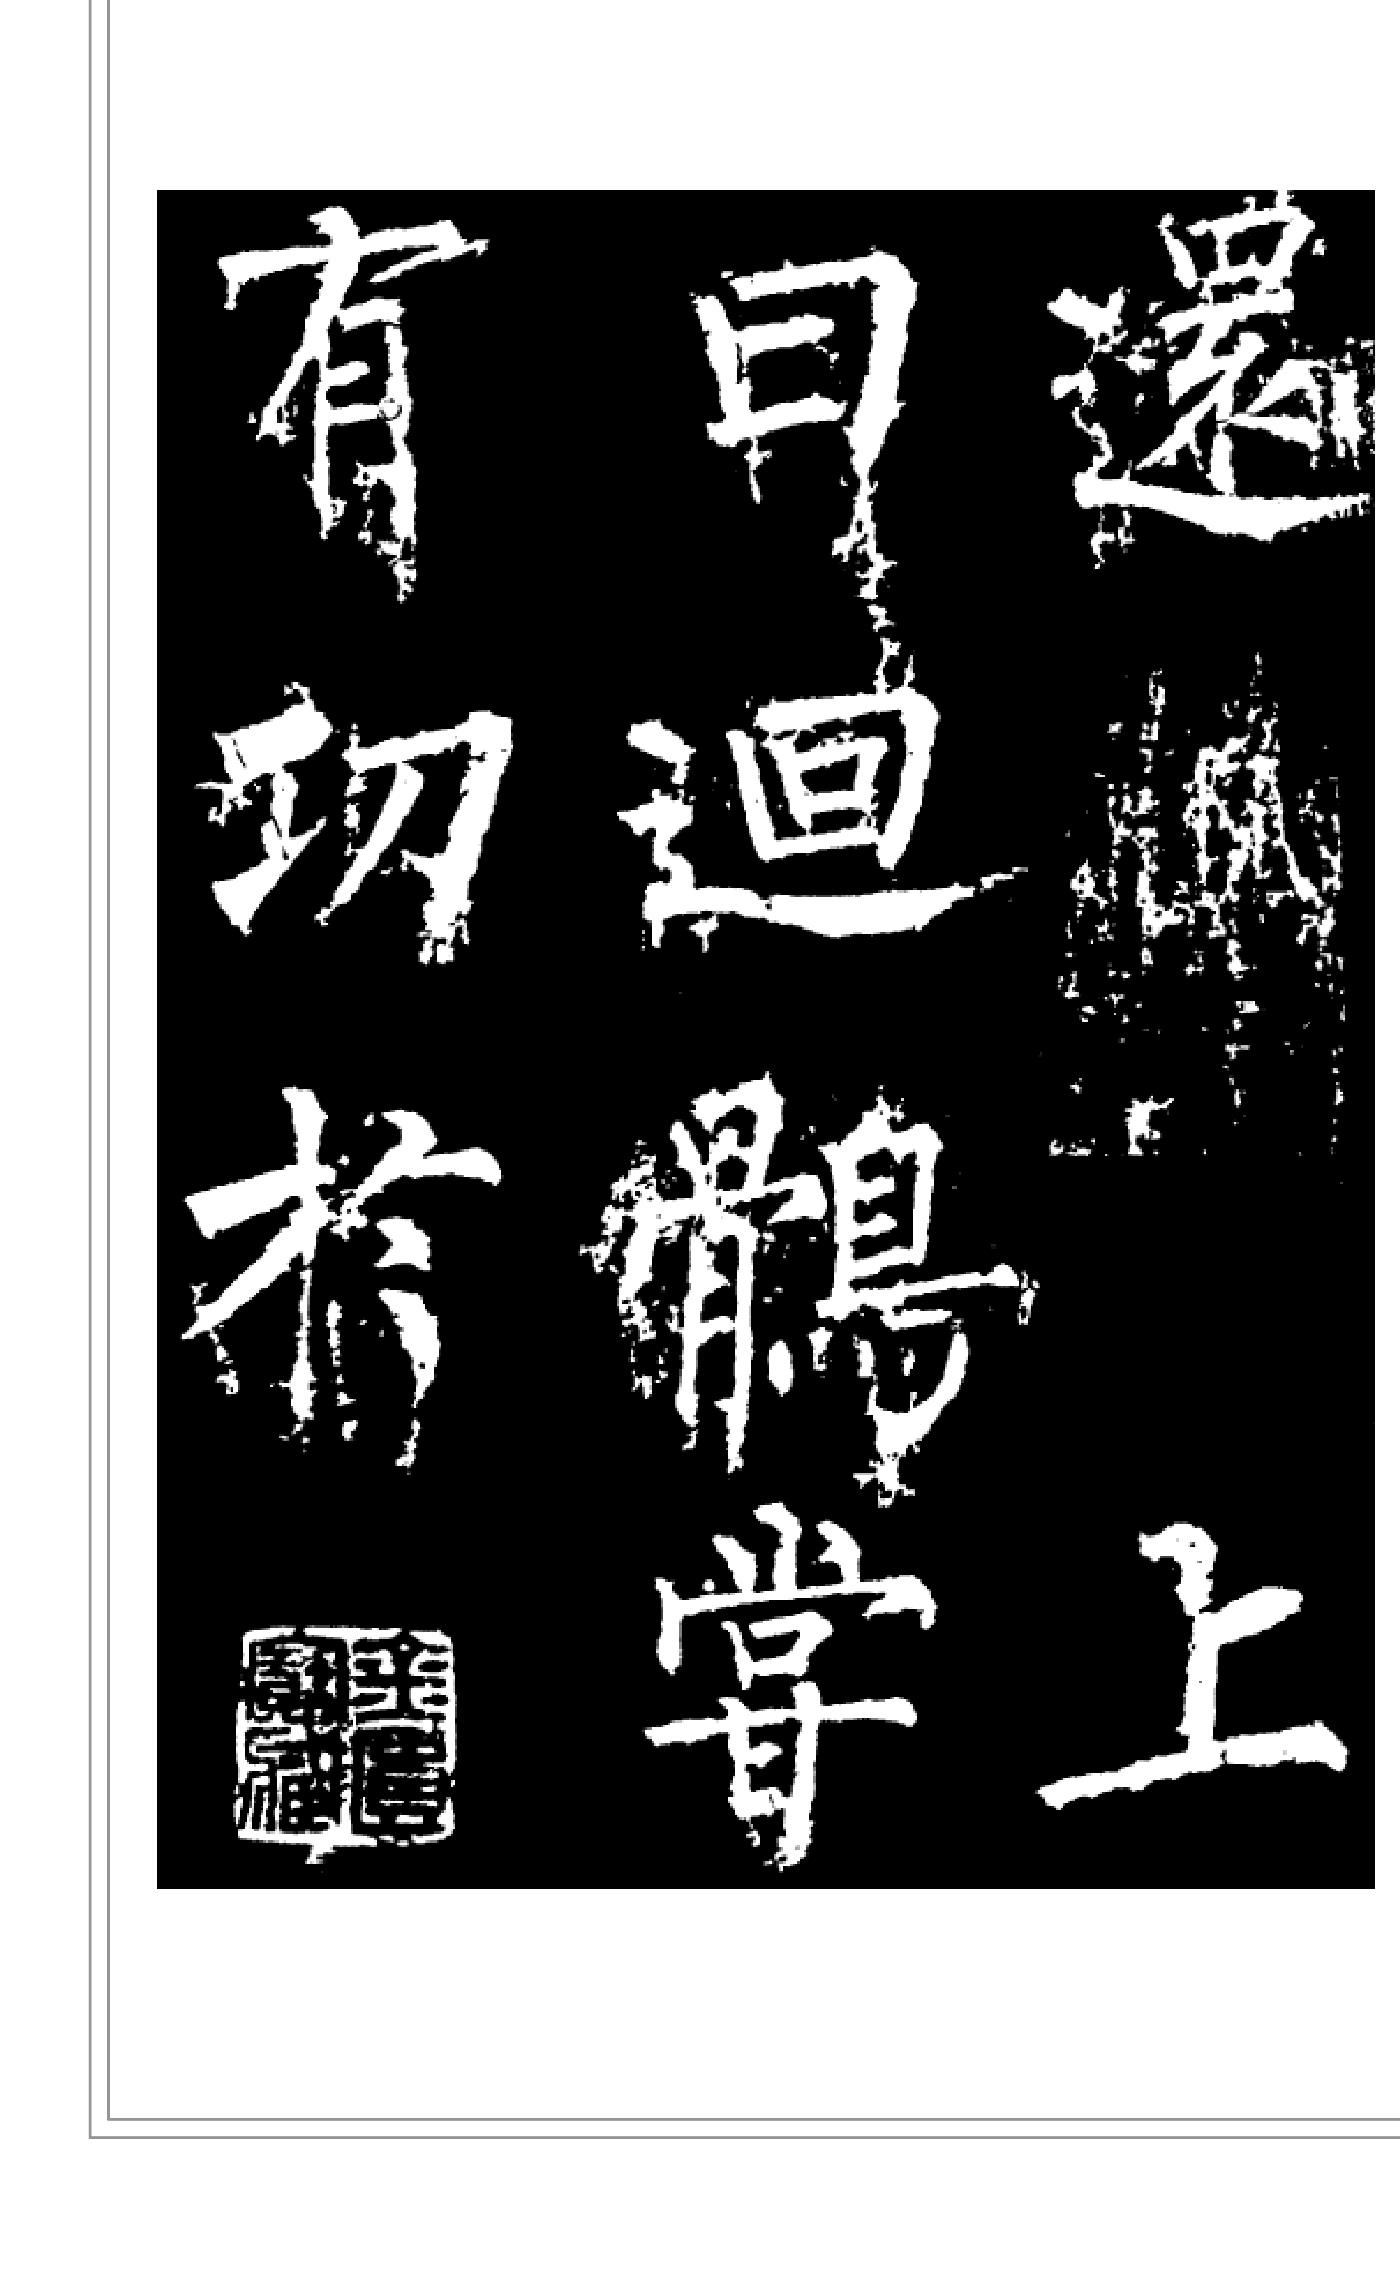 還上
曰迴鶻嘗
有功於